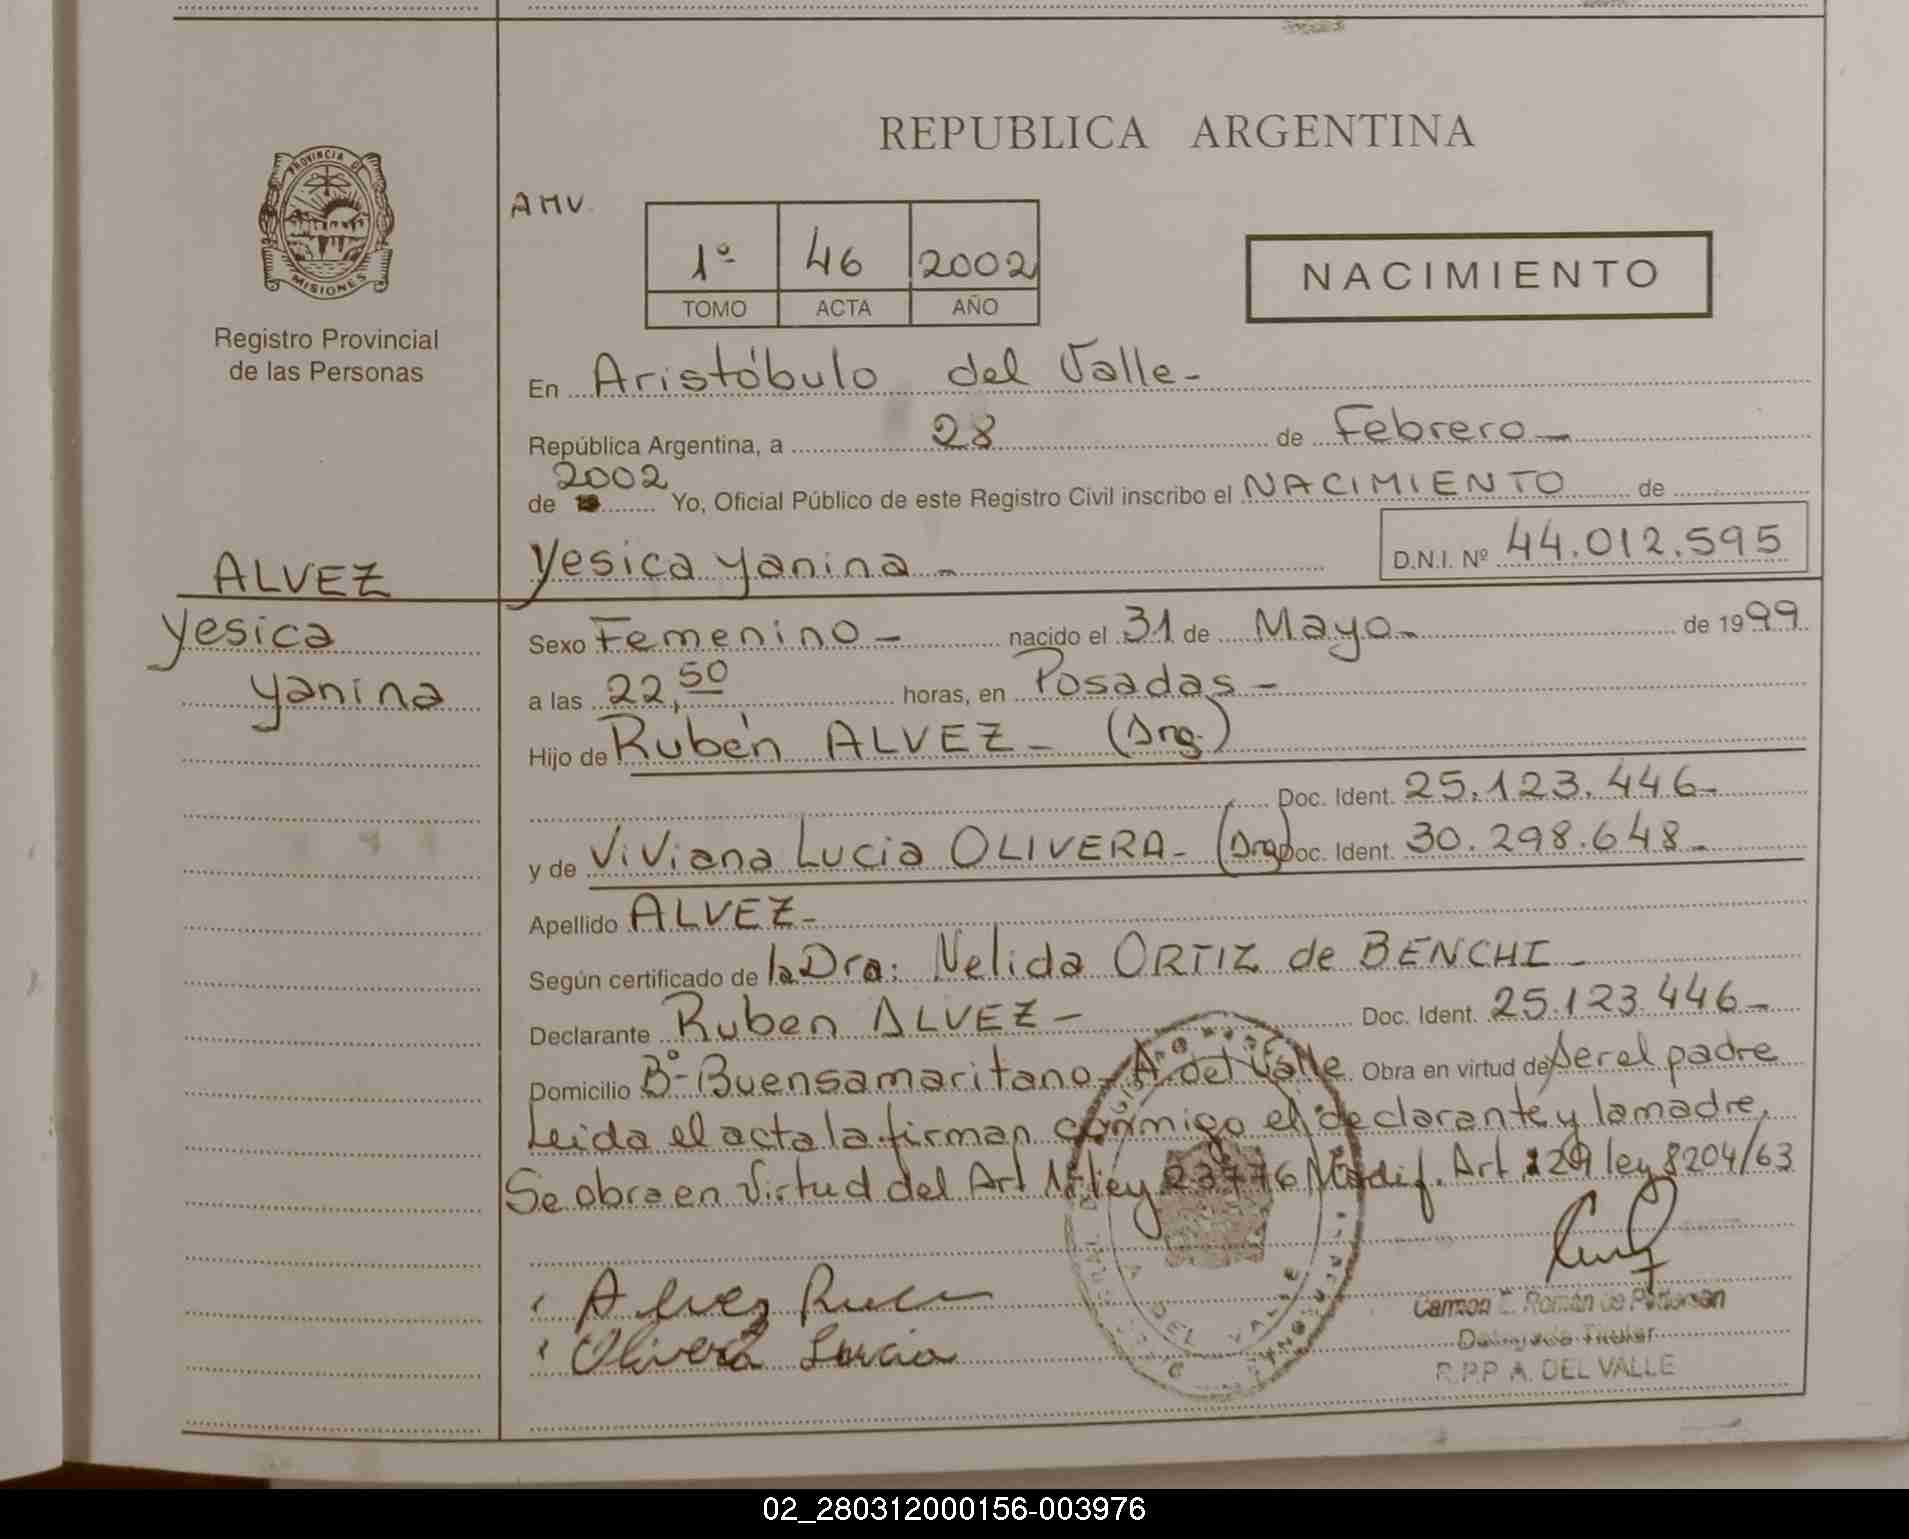 REPUBLICA ARGENTINA
PROVINCIA DE
MISIONES
Registro Provincial
de las Personas
AMV.
1º 46 2002
TOMO ACTA AÑO
NACIMIENTO
En Aristóbulo del Valle-
República Argentina, a 28 de Febrero-
2002
de 19 Yo, Oficial Público de este Registro Civil inscribo el NACIMIENTO de
Yesica Yanina - D.N.I. Nº 44.012.595
ALVEZ
Yesica
Yanina
Sexo Femenino - nacido el 31 de Mayo- de 1999
a las 22,50 horas, en Posadas-
Hijo de Rubén ALVEZ- (Arg.)
Doc. Ident. 25.123.446-
y de Viviana Lucia OLIVERA- (Arg) Doc. Ident. 30.298.648-
Apellido ALVEZ-
Según certificado de la Dra: Nelida ORTIZ de BENCHI-
Declarante Ruben ALVEZ- Doc. Ident. 25.123.446-
Domicilio Bº- Buensamaritano- A. del Valle Obra en virtud de Ser el padre
Leida el acta la firman conmigo el declarante y la madre.
Se obra en Virtud del Art 1º ley 23776 Modif. Art 29 ley 8204/63
Alvez Ruben
Olivera Lucia
A. DEL VALLE
Carmen E. Román de Pedersen
Delegada Titular
R.P.P. A. DEL VALLE
02_280312000156-003976